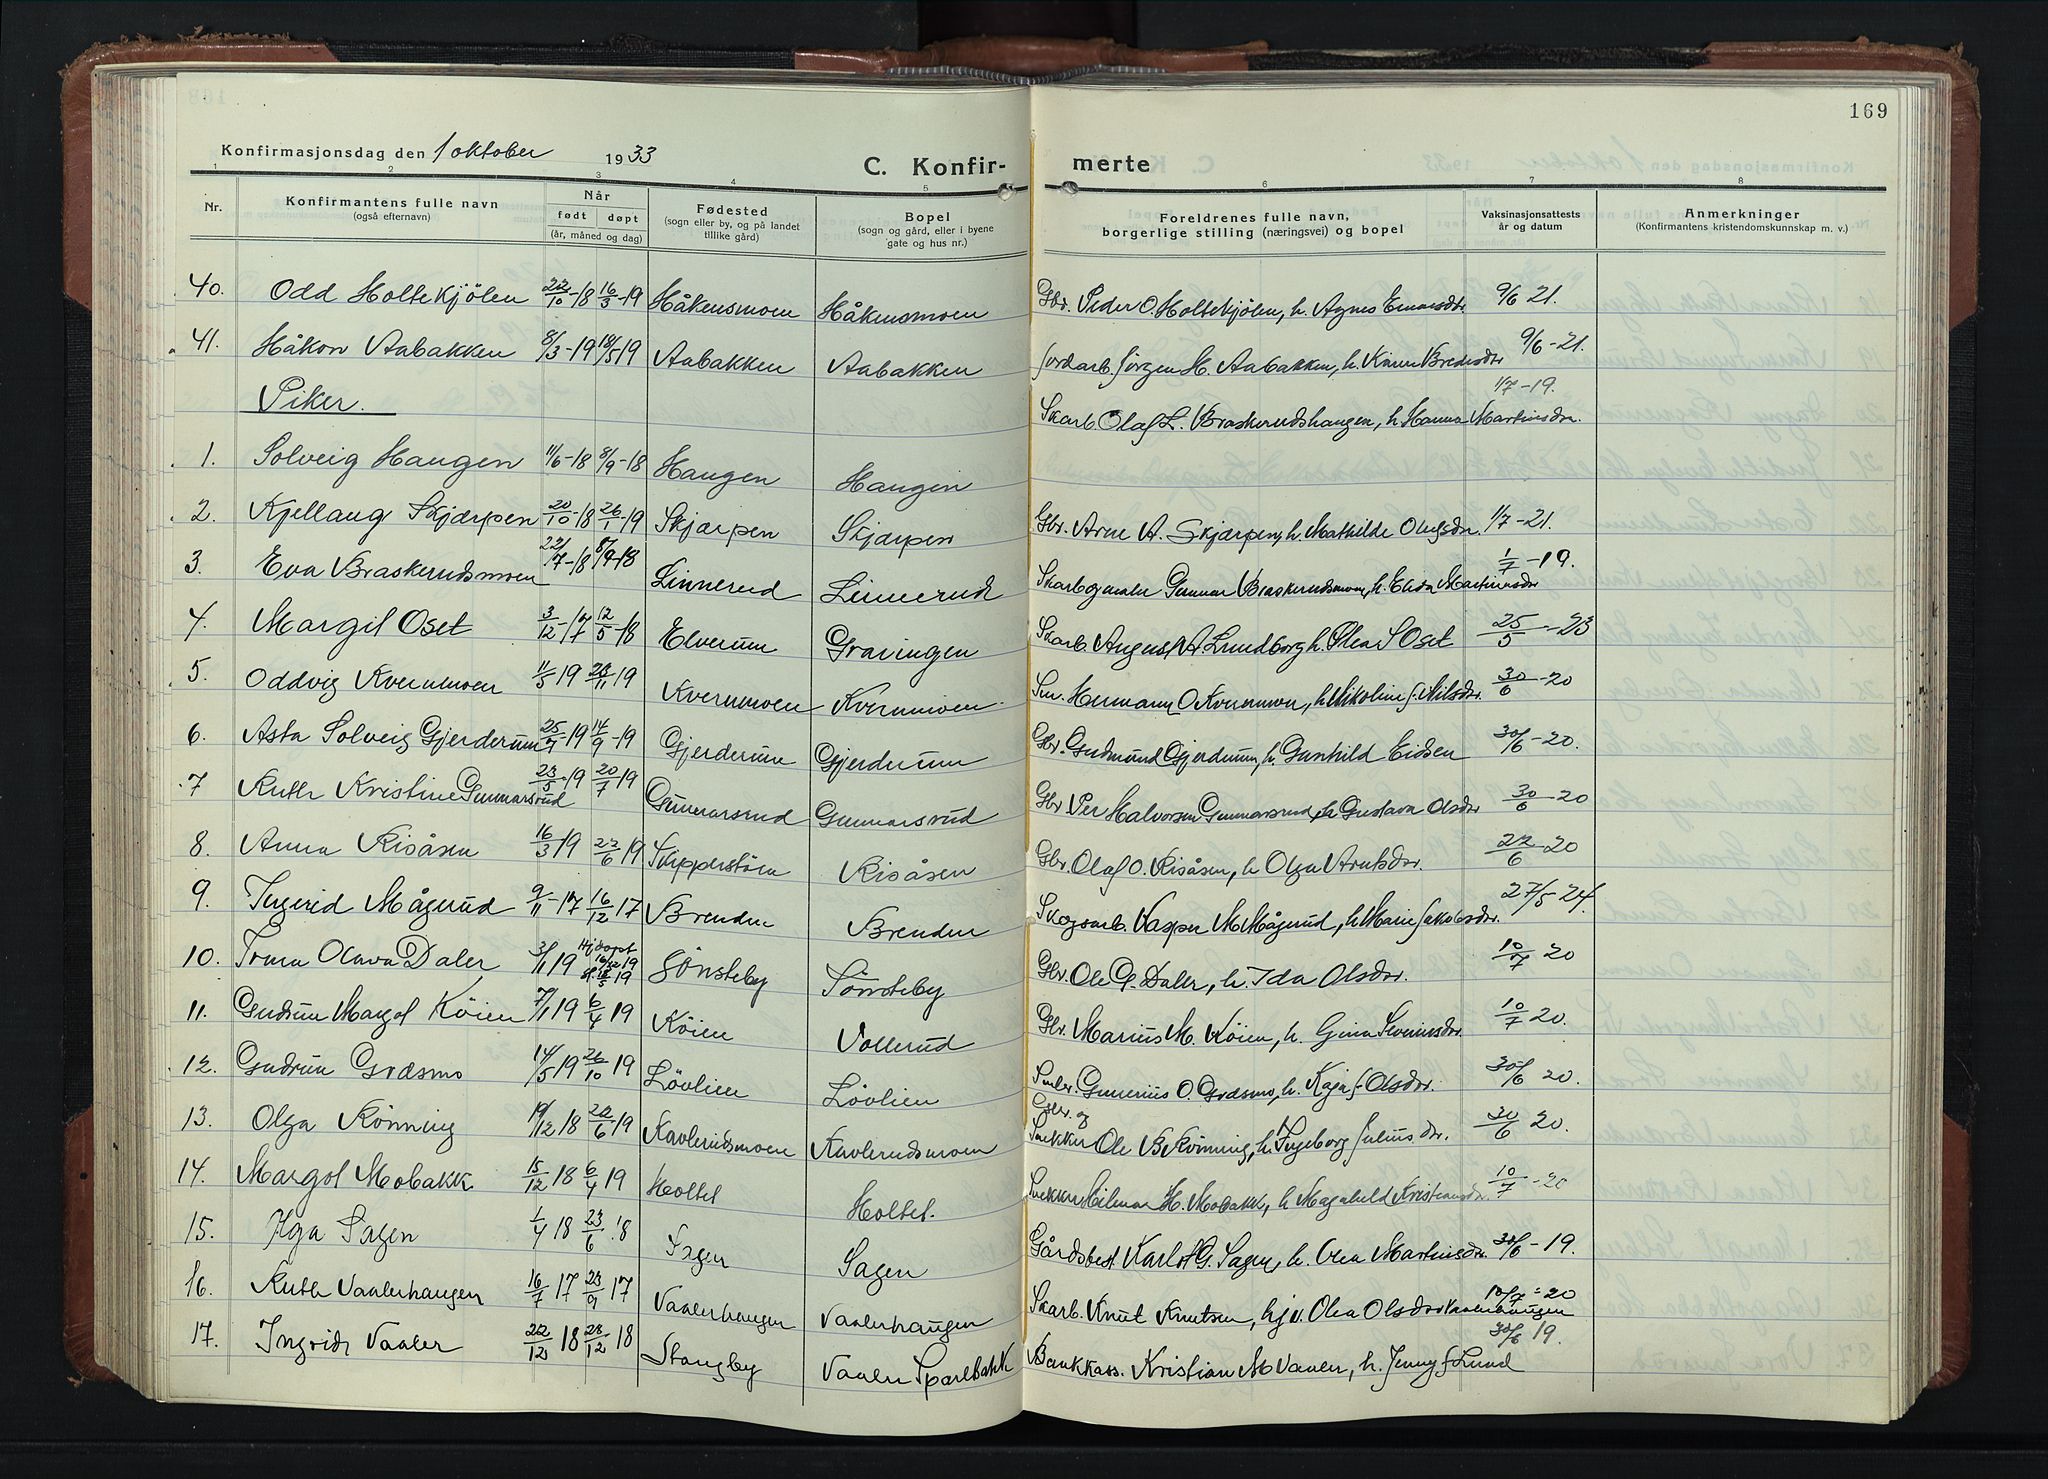 169
Konfirmasjonsdag den 1 oktober 1933
C. Konfir- merte
1 2 3 4 5 6 7 8
Nr. Konfirmantens fulle navn (også efternavn) Når født døpt (år, måned og dag) Fødested (sogn eller by, og på landet tillike gård) Bopel (sogn og gård, eller i byene gate og hus nr.) Foreldrenes fulle navn, borgerlige stilling (næringsvei) og bopel Vaksinasjonsattests år og datum Anmerkninger (Konfirmantens kristendomskunnskap m. v.)
40. Odd Holtekjölen 22/10-18 16/3-19 Håkensmoen Håkensmoen Gbr. Peder O. Holtekjölen, h. Agnes Einarsdtr. 9/6 21.
41. Håkon Aabakken 8/3-19 18/5 19 Aabakken Aabakken Jordarb. Jörgen H. Aabakken, h. Karen Bredesdtr 9/6-21.
Piker. 1/7-19.
1. Solveig Haugen 11/6-18 8/9-18 Haugen Haugen Skarb. Olaf L. Braskerudshaugen, h Hanna Martinsdtr.
2. Kjellaug Skjærpen 20/10-18 26/1-19 Skjærpen Skjærpen Gbr. Arne A. Skjærpen, h. Mathilde Olufsdtr. 1/7-21.
3. Eva Braskerudsmoen 22/7-18 8/9-18 Linnerud Linnerud Skarb og maler Gunnar Braskerudsmoen, h. Elida Martinusdtr 1/7-19.
4. Margit Oset 3/12-17 12/5-18 Elverum Gravingen Skarb. August A Lundborg h. Olea S Oset 25/5-23
5. Oddvig Kvernmoen 11/5 19 26/11 19 Kvernmoen Kvernmoen Sm. Hermann O Kvernmoen, h Nikoline J. Nilsdtr. 30/6-20
6. Asta Solveig Gjerderum 25/7-19 14/9-19 Gjerderum Gjerderum Gbr. Gudmund Gjerderum, h. Gunhild Eidsen 30/6-20.
7 Ruth Kristine Gunnarsrud 23/5-19 20/7 19 Gunnarsrud Gunnarsrud Gbr Per Halvorsen Gunnarsrud, h Gustava Olsdtr 30/6-20
8. Anna Risåsen 16/3 19 22/6 19 Skipperstöen Risåsen Gbr. Olaf O. Risåsen, h Olga Arntsdtr. 22/6-20
9. Ingerid Mågerud 9/11-17 16/12 17 Brenden Brenden Skogsarb. Kasper M Mågerud, h Marie Jakobsdtr. 27/5-24.
10. Irma Olava Daler 3/1 19 Hj.döpt Sönsteby Sönsteby Gbr. Ole O. Daler, h. Ida Olsdtr. 10/7 20
11. Gudrun Margot Köien 7/1 19 6/4 19 Köien Vollerud Gbr. Marius M. Köien, h. Gina Severinsdtr. 10/7 20.
12. Gudrun Grasmo 14/5 19 26/10 19 Lövlien Lövlien Smbr. Gunerius O. Grasmo, h. Kaja J. Olsdtr. 30/6 20.
13. Olga Rönning 19/12 18 22/6 19 Kavlerudsmoen Kavlerudsmoen Gbr. og Snekker Ole B Rönning, h. Ingeborg Juliusdtr. 30/6 20.
14. Margot Mobakk 15/12 18 6/4 19 Holtet Holtet. Snekker Hilmar H. Mobakk, h Magnhild Kristiansdtr. 10/7-20
15. Olga Sagen 1/4 18 23/6 18 Sagen Sagen Gårdsbest. Karl G. Sagen, h. Olea Martinsdtr. 30/6-19.
16. Ruth Vaalerhaugen 16/7 17 23/9 17 Vaalerhaugen Vaalerhaugen Skarb. Knut Knutsen, hj. v. Olea Olsdtr Vaalerhaugen 10/7-20
17. Ingrid Vaaler 22/12 18 28/12-18 Stangby Vaaler Sparebakk Bankkass. Kristian M Vaaler, h. Jenny J Lund 30/6 19.